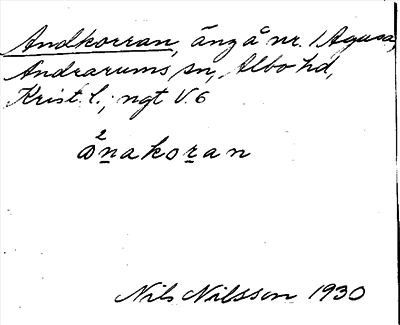 Andkorran, äng å nr. 1 Agusa,
Andrarums sn, Albo hd,
Krist. l.; ngt V. 6
²ɒnakoran
Nils Nilsson 1930